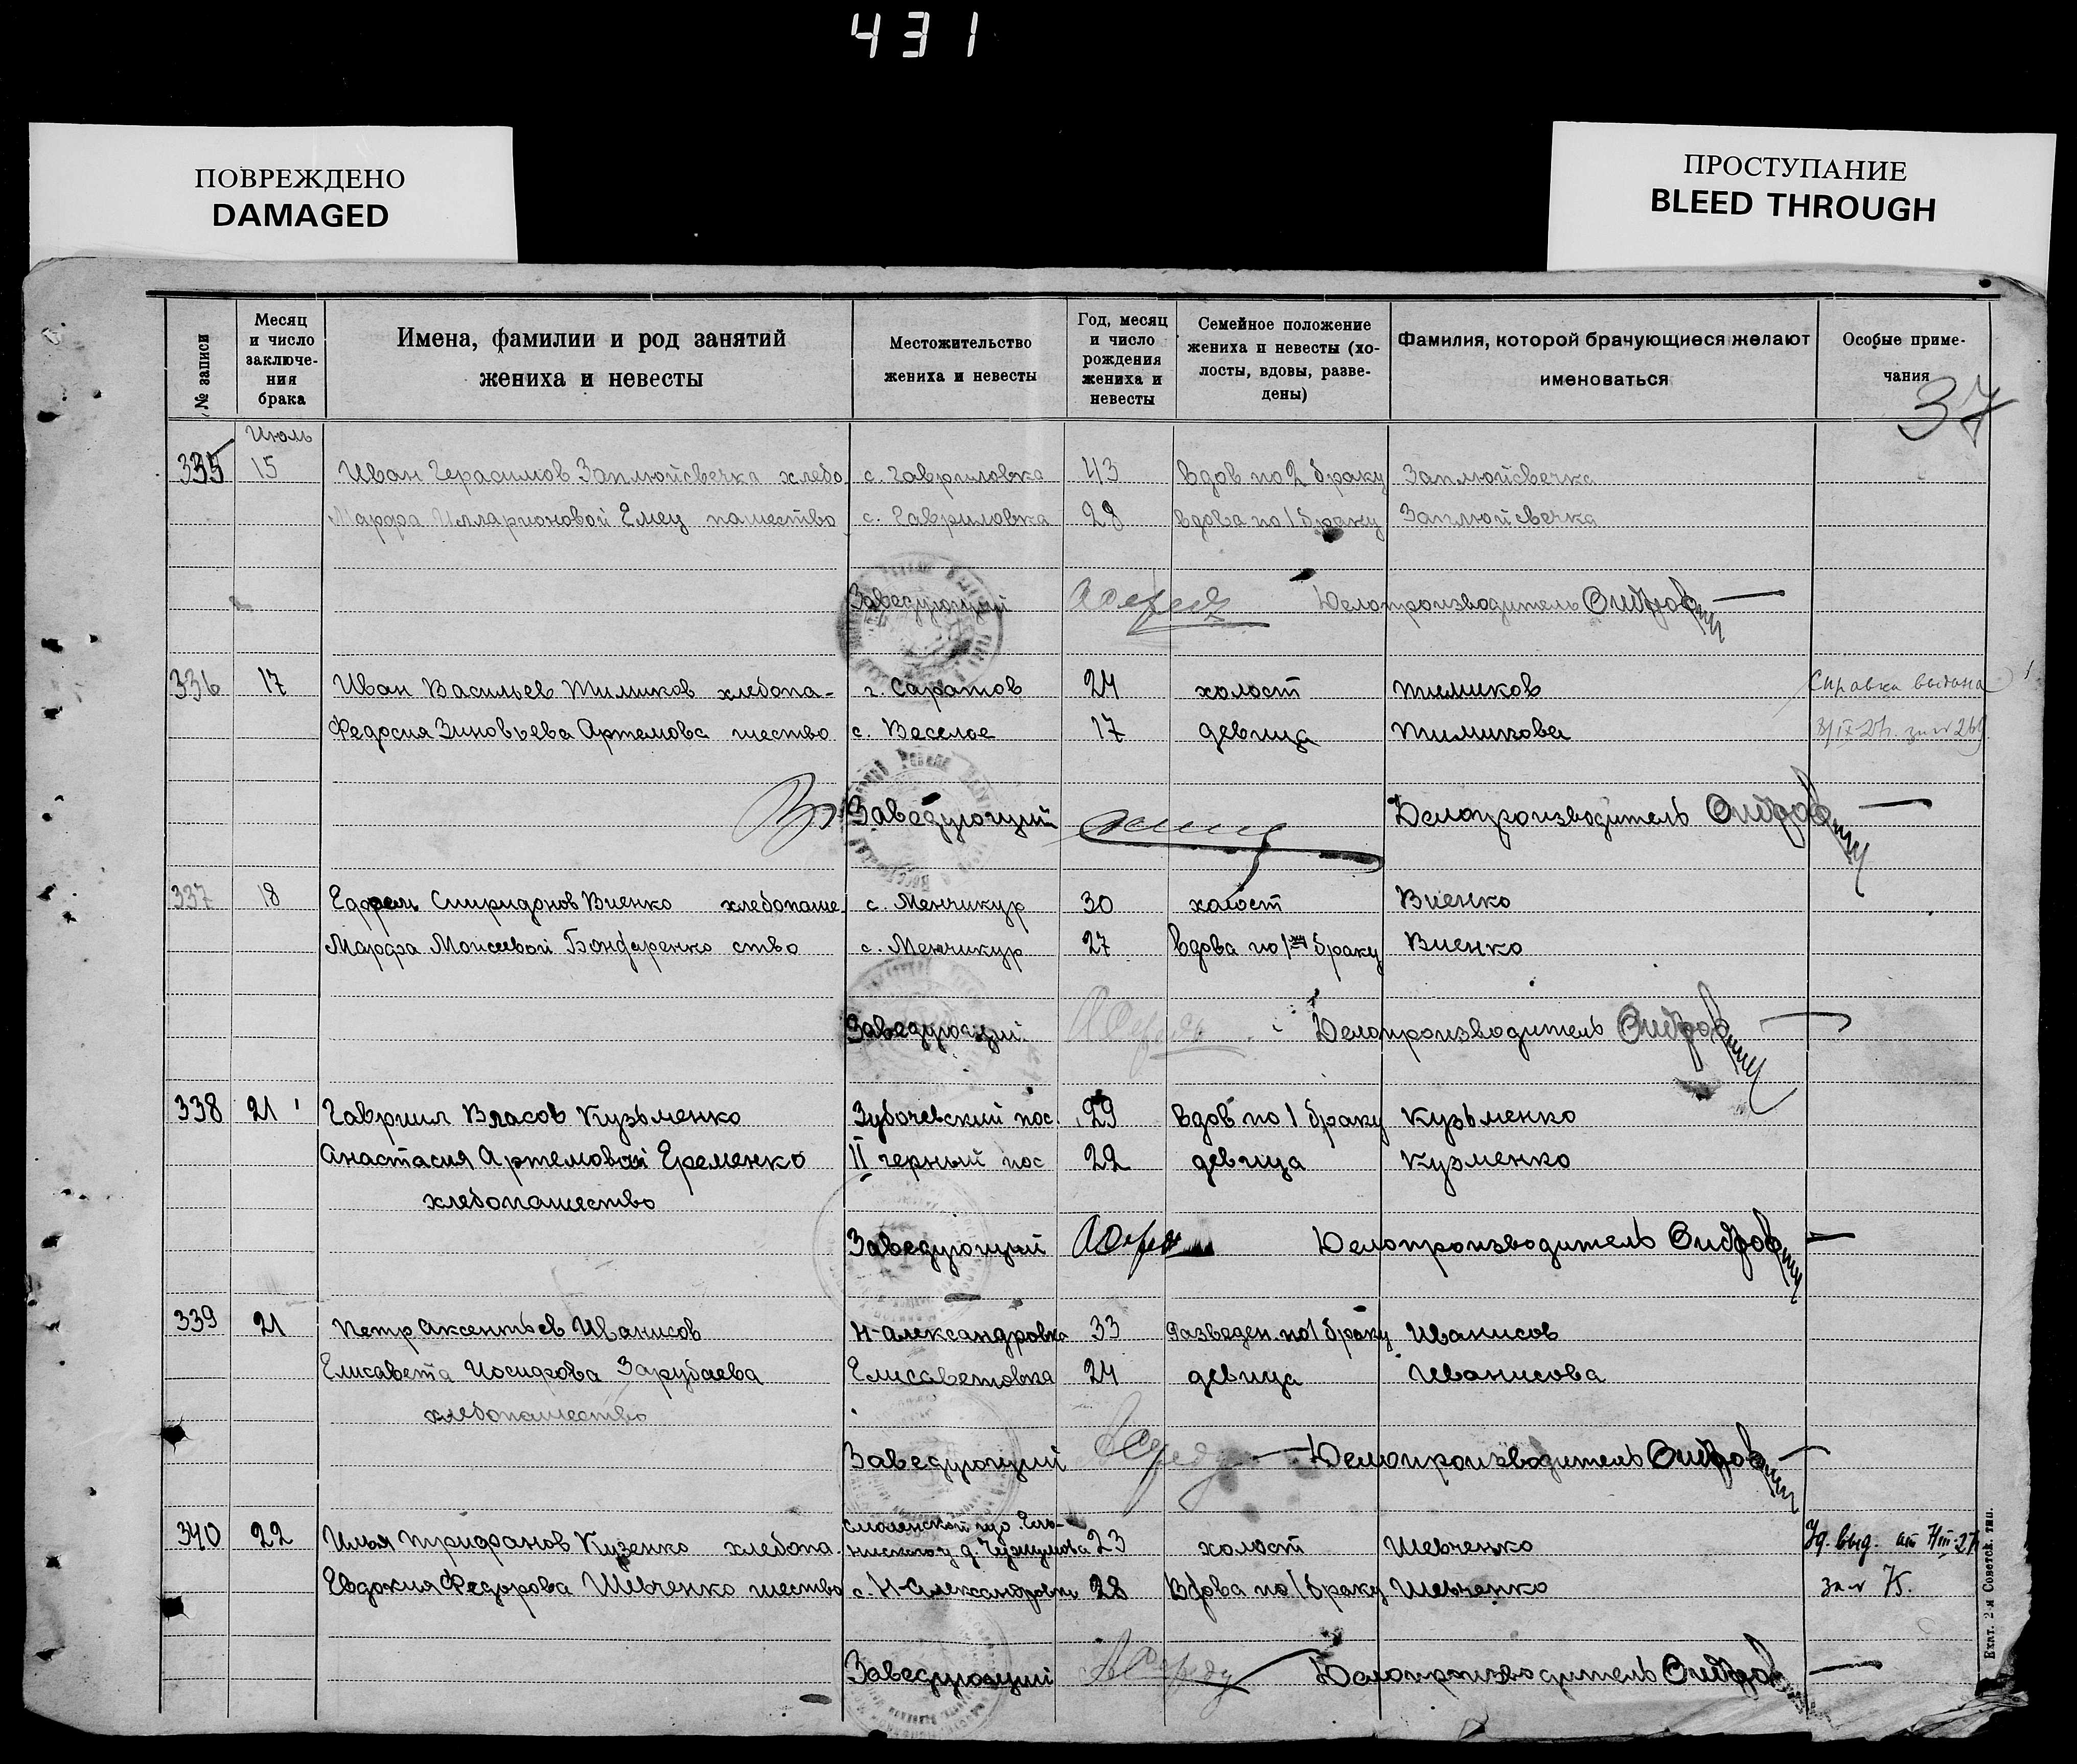 431
ПОВРЕЖДЕНО
DAMAGED
ПРОСТУПАНИЕ
BLEED THROUGH
№ записи
Месяц и число заключе-ния брака
Имена, фамилии и род занятий жениха и невесты
Местожительство жениха и невесты
Год, месяц и число рождения жениха и невесты
Семейное положение жениха и невесты (хо-лосты, вдовы, разве-дены)
Фамилия, которой брачующиеся желают именоваться
Особые приме-чания
37
Июль
335 15 Иван Герасимов Заплюйсвечка хлебо с. Гавриловка 43 вдов по 2 браку Заплюйсвечка
Марфа Илларионовой Емец пашество с. Гавриловка 28 вдова по 1 браку Заплюйсвечка
Заведующий Делопроизводитель
336 17 Иван Васильев Тимиков хлебопа- г. Саратов 24 холост Тимиков Справка выдана
Федосия Зиновьева Артемова шество с. Веселое 17 девица Тимикова
Заведующий Делопроизводитель
337 18 Ефрем Спиридонов Виенко хлебопаше с. Менчикур 30 холост Виенко
Марфа Моисеевой Бондаренко ство с. Менчикур 27 вдова по 1му браку Виенко
Заведующий Делопроизводитель
338 21 Гавриил Власов Кузьменко Зубочевский пос. 29 вдов по 1 браку Кузьменко
Анастасия Артемовой Еременко II черный пос 22 девица Кузменко
хлебопашество
Заведующий Делопроизводитель
339 21 Петр Аксентьев Иванисов Н-Александровка 33 Разведен по 1 браку Иванисов
Елисавета Иосифова Зарубаева Елисаветовка 24 девица Иванисова
хлебопашество
Заведующий Делопроизводитель
Смоленской губ. Ель-
340 22 Илья Трифанов Кузенко хлебопа. нинского у д. 23 холост Шевченко
Евдокия Федорова Шевченко шество с. Н-Александровка 28 Вдова по 1 браку Шевченко за № 75.
Заведующий Делопроизводитель
Екат. 2-я Советск. тип.